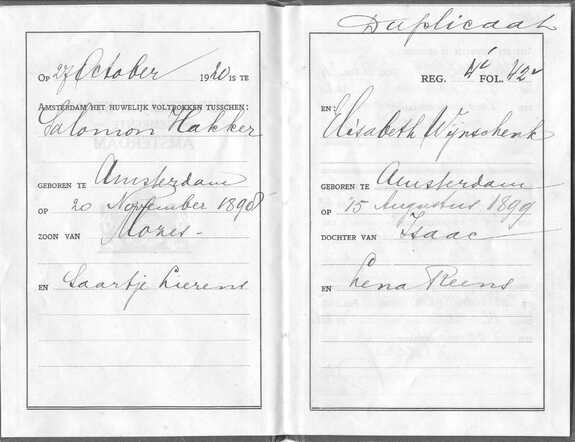 OP 27 October 1920 IS TE
AMSTERDAM HET HUWELIJK VOLTROKKEN TUSSCHEN:
Salomon Hakker
GEBOREN TE Amsterdam
OP 20 November 1898
ZOON VAN Mozes
EN Saartje Lierens
Duplicaat
REG. 4c FOL. 42v
EN:
Elisabeth Wijnschenk
GEBOREN TE Amsterdam
OP 15 Augustus 1899
DOCHTER VAN Isaac
EN Lena Reens